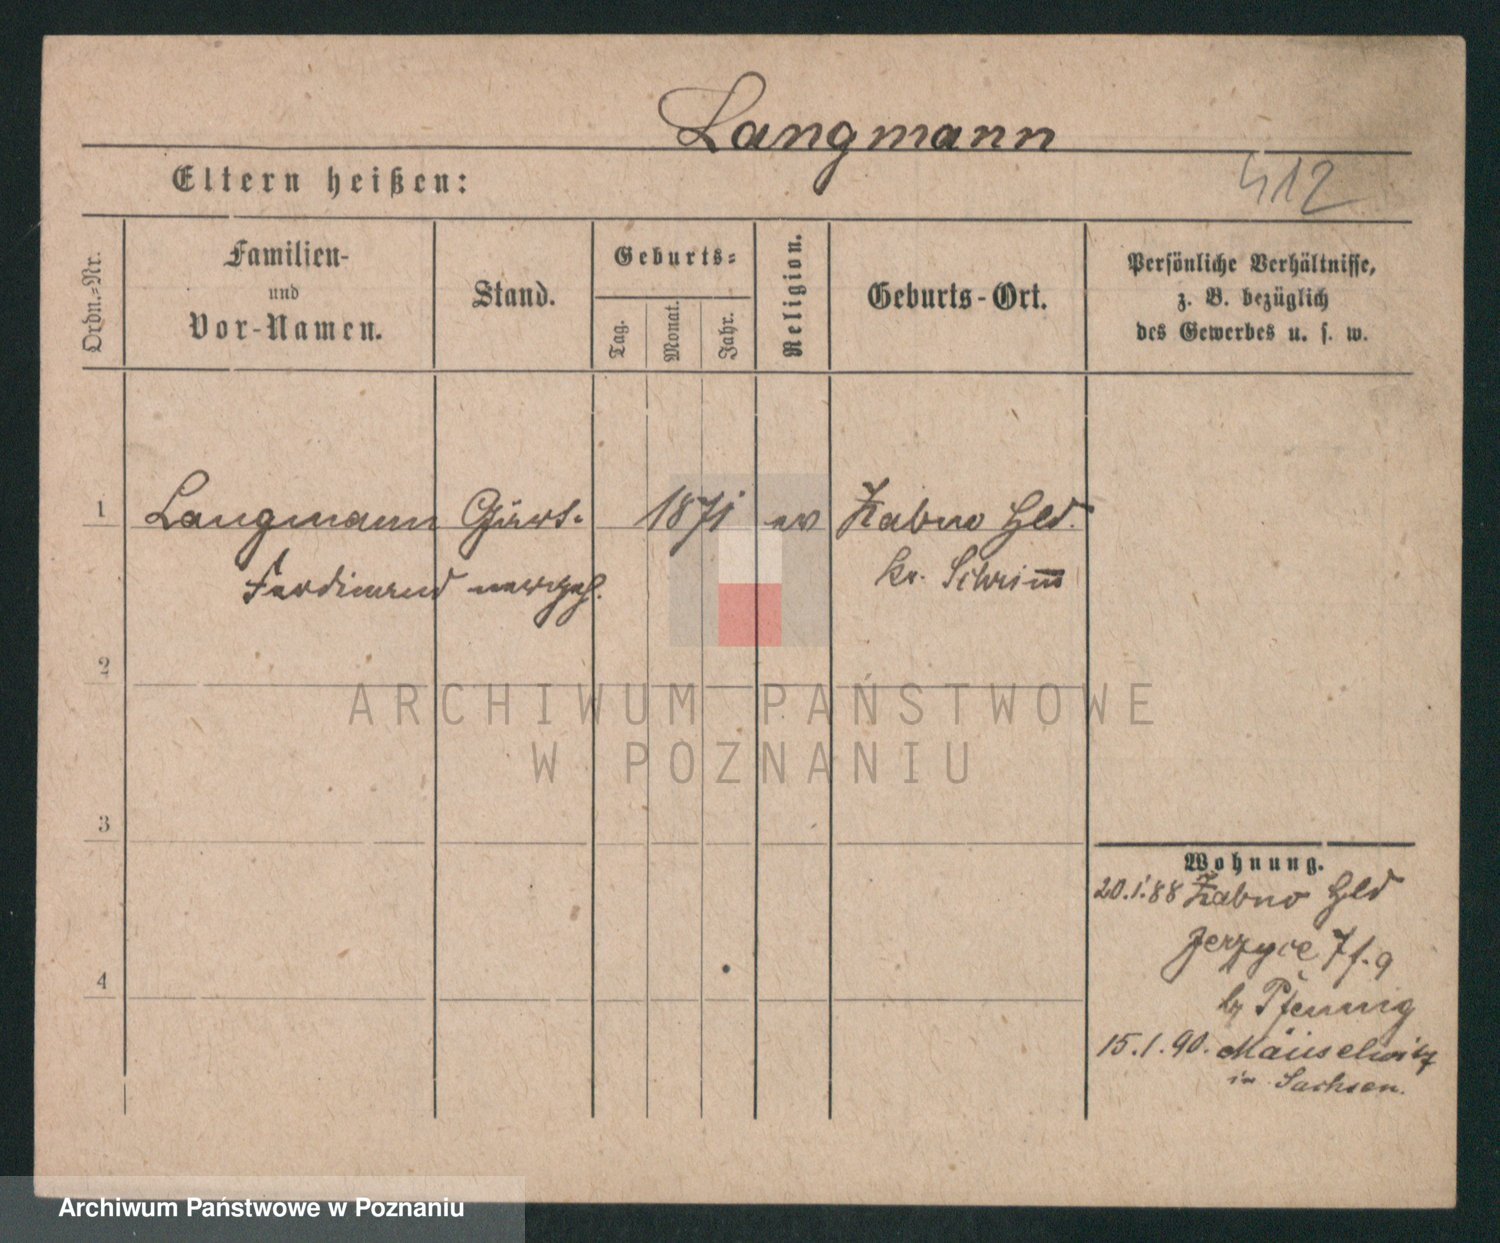 Langmann
Eltern heißen:
412
Ordn.-Nr.
Familien-
und
Vor-Namen.
Stand.
Geburts-
Tag.
Monat.
Jahr.
Religion.
Geburts-Ort.
Persönliche Verhältnisse,
z. B. bezüglich
des Gewerbes u. s. w.
1 Langmann 1871 ev Zabno Hld.
Ferdinand Kr. Schrim̅
2
ARCHIWUM PAŃSTWOWE
W POZNANIU
3
4
Wohnung.
20.1.88 Zabno Hld
Jerzyce
Pfennig
15.1.90. Mäuselwitz
in Sachsen.
Archiwum Państwowe w Poznaniu